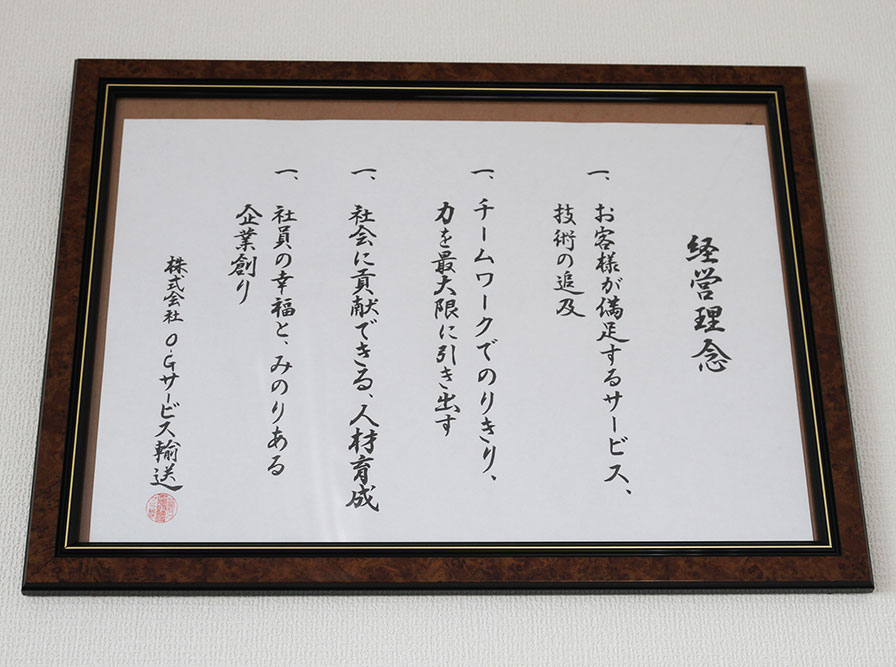 経営理念
一、お客様が満足するサービス、
技術の追及
一、チームワークでのりきり、
力を最大限に引き出す
一、社会に貢献できる、人材育成
一、社員の幸福と、みのりある
企業創り
株式会社 O.Gサービス輸送